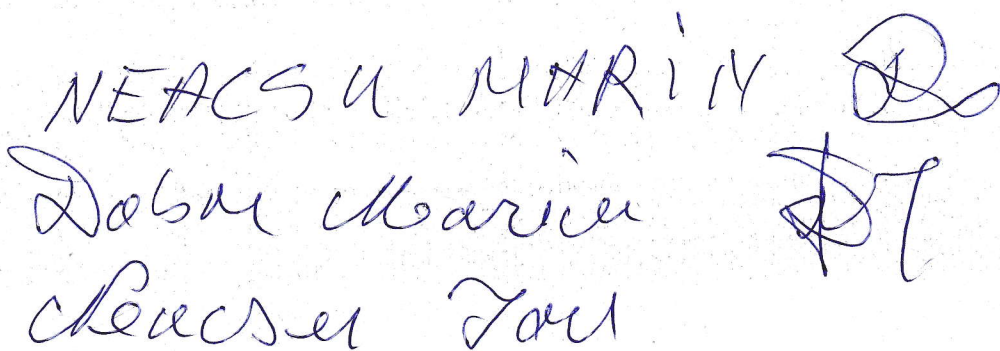 NEACSU MARIN
Dobre Marin
Neacsu Ion